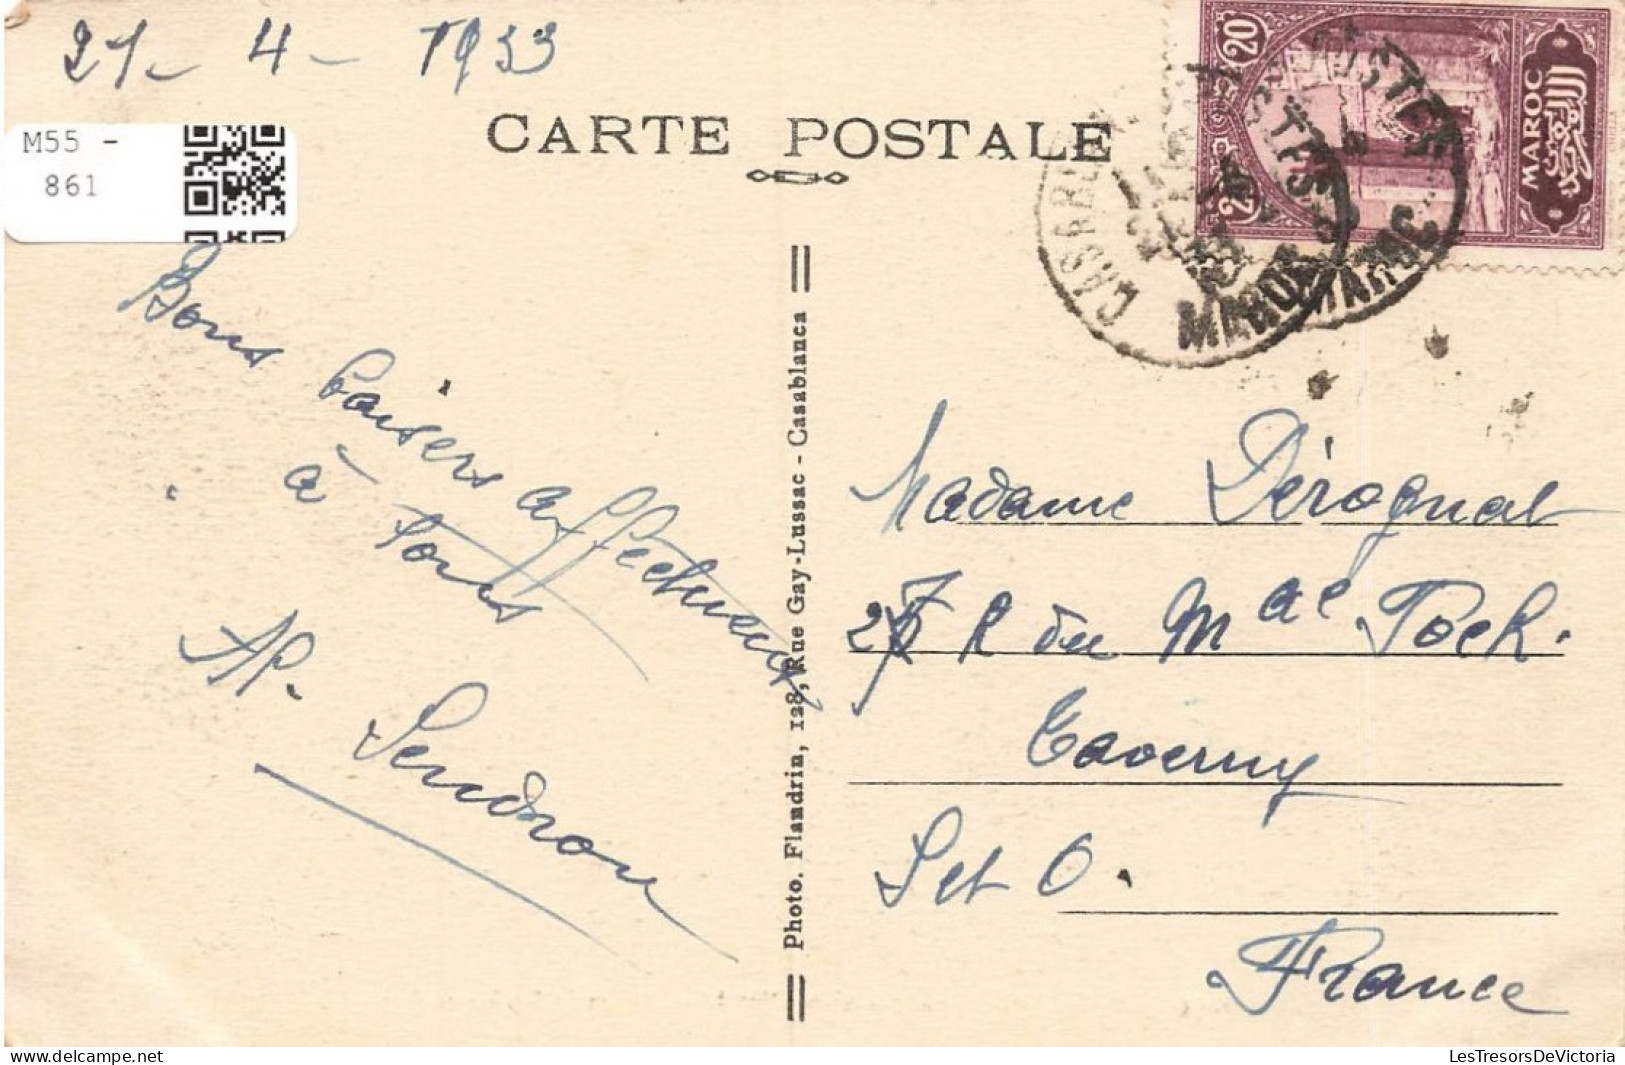 21- 4- 1933
M55 -
861
CARTE POSTALE
20
20
MAROC
المغرب
CASABLANCA
POSTES
POSTES
MAROC
MAROC
Bons baisers affectueux
à tous
AP. Sendron
Photo. Flandrin, 128, Rue Gay-Lussac - Casablanca
Madame Dérognat
27 R du Mal Foch.
Taverny
S et O.
France
LesTresorsDeVictoria
www.delcampe.net